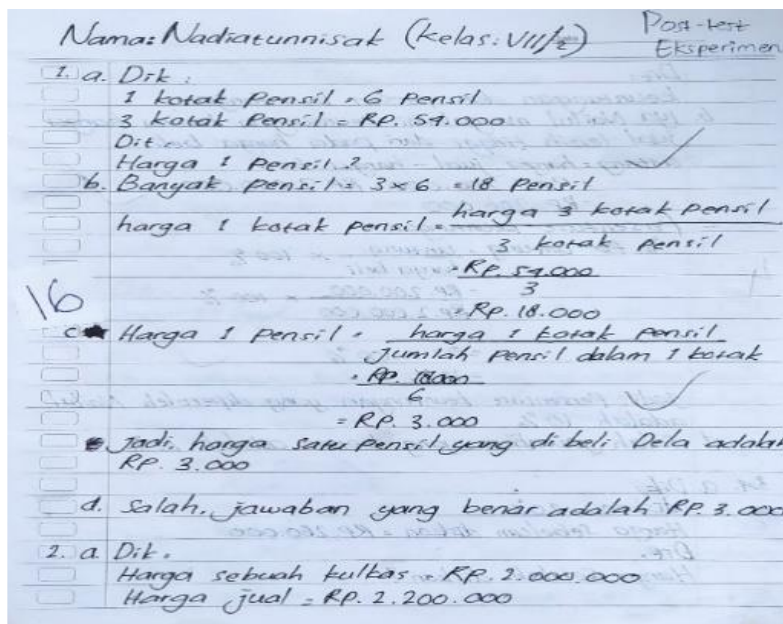 Nama: Nadiatunnisak (kelas: VII/2)
Post-test
Eksperimen
1. a. Dik:
1 kotak Pensil = 6 Pensil
3 kotak Pensil = RP. 54.000
Dit:
Harga 1 Pensil?
b. Banyak Pensil = 3 × 6 = 18 Pensil
harga 1 kotak pensil = harga 3 kotak pensil
3 kotak pensil
= RP. 54.000
3
= RP. 18.000
16
c Harga 1 Pensil = harga 1 kotak pensil
Jumlah pensil dalam 1 kotak
= RP. 18000
6
= RP. 3.000
Jadi, harga satu pensil yang di beli Dela adalah
RP. 3.000
d. Salah. jawaban yang benar adalah RP. 3.000
2. a Dik.
Harga sebuah kulkas = RP. 2.000.000
Harga jual = RP. 2.200.000